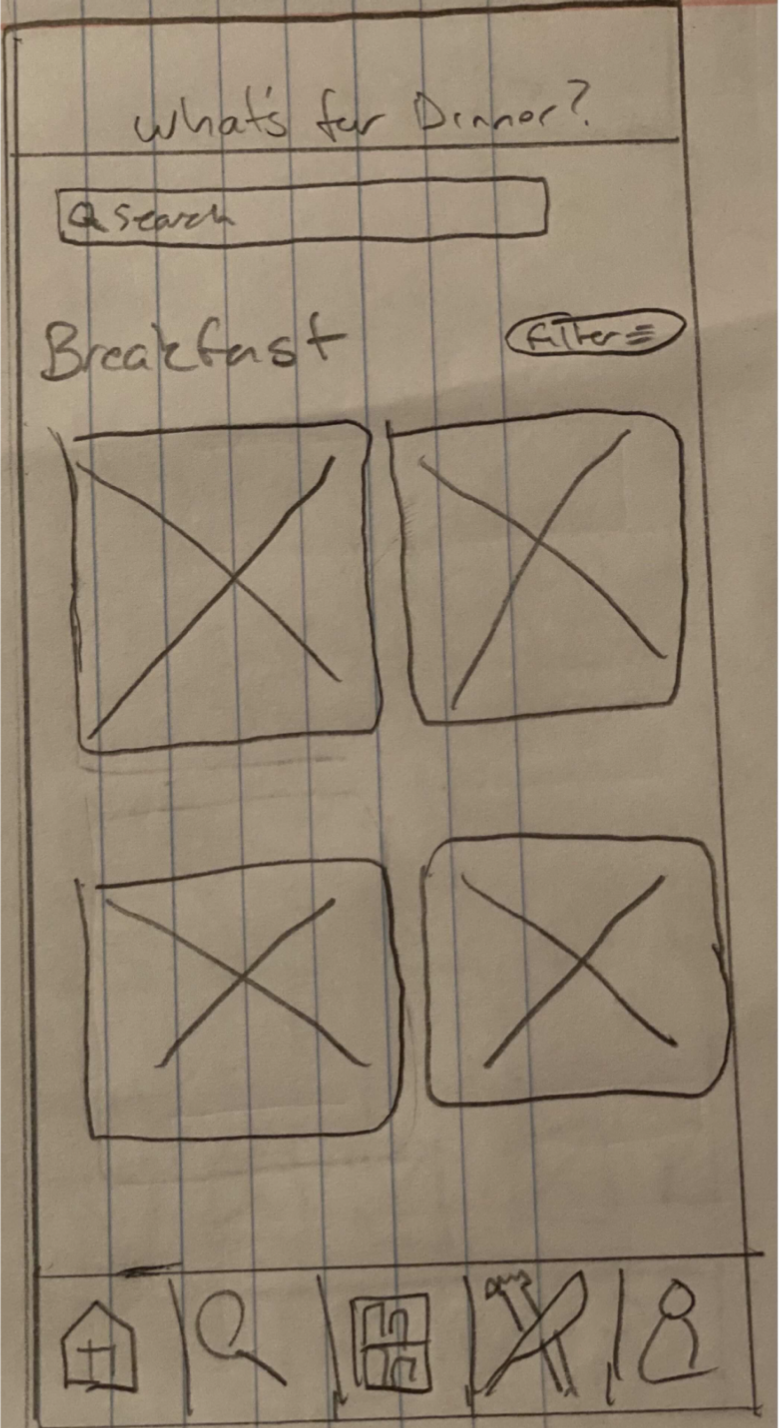 What's for Dinner?
Search
Breakfast
Filter